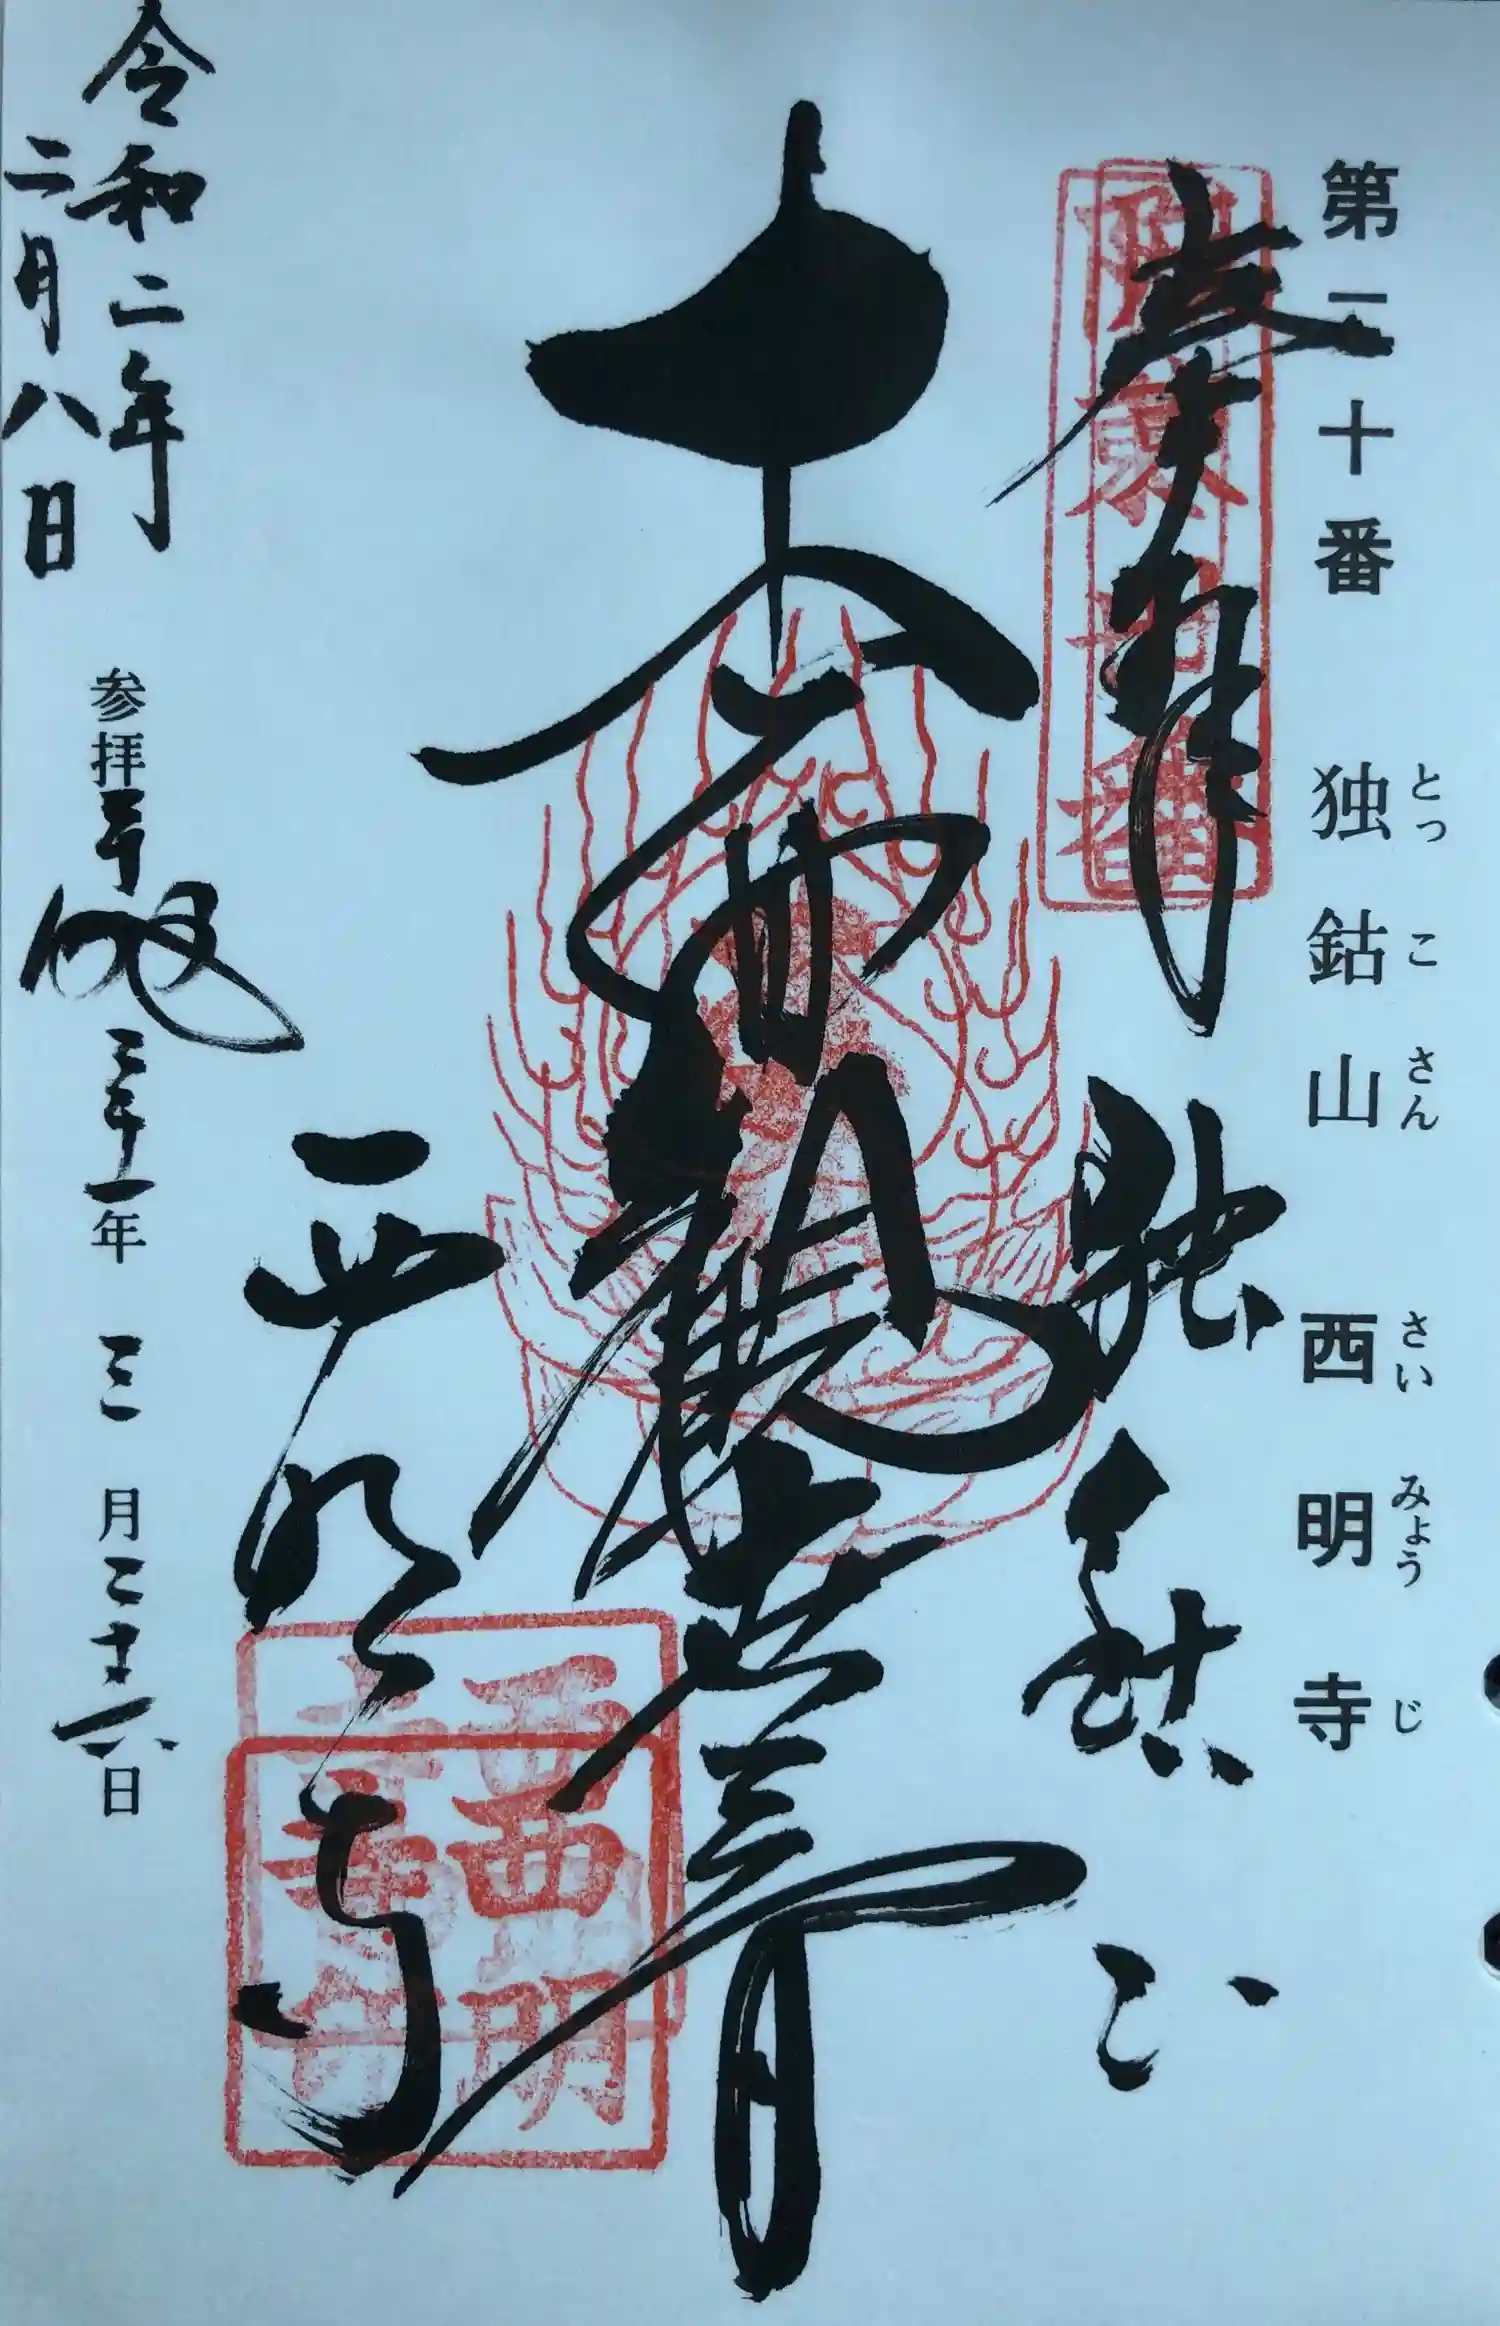 第二十番 独鈷山 西明寺
とっ こ さん さい みょう じ
奉拝 独鈷山
十一面観世音
西明寺
西明寺印
参拝平成三十一年 三月二十六日
令和二年
二月八日